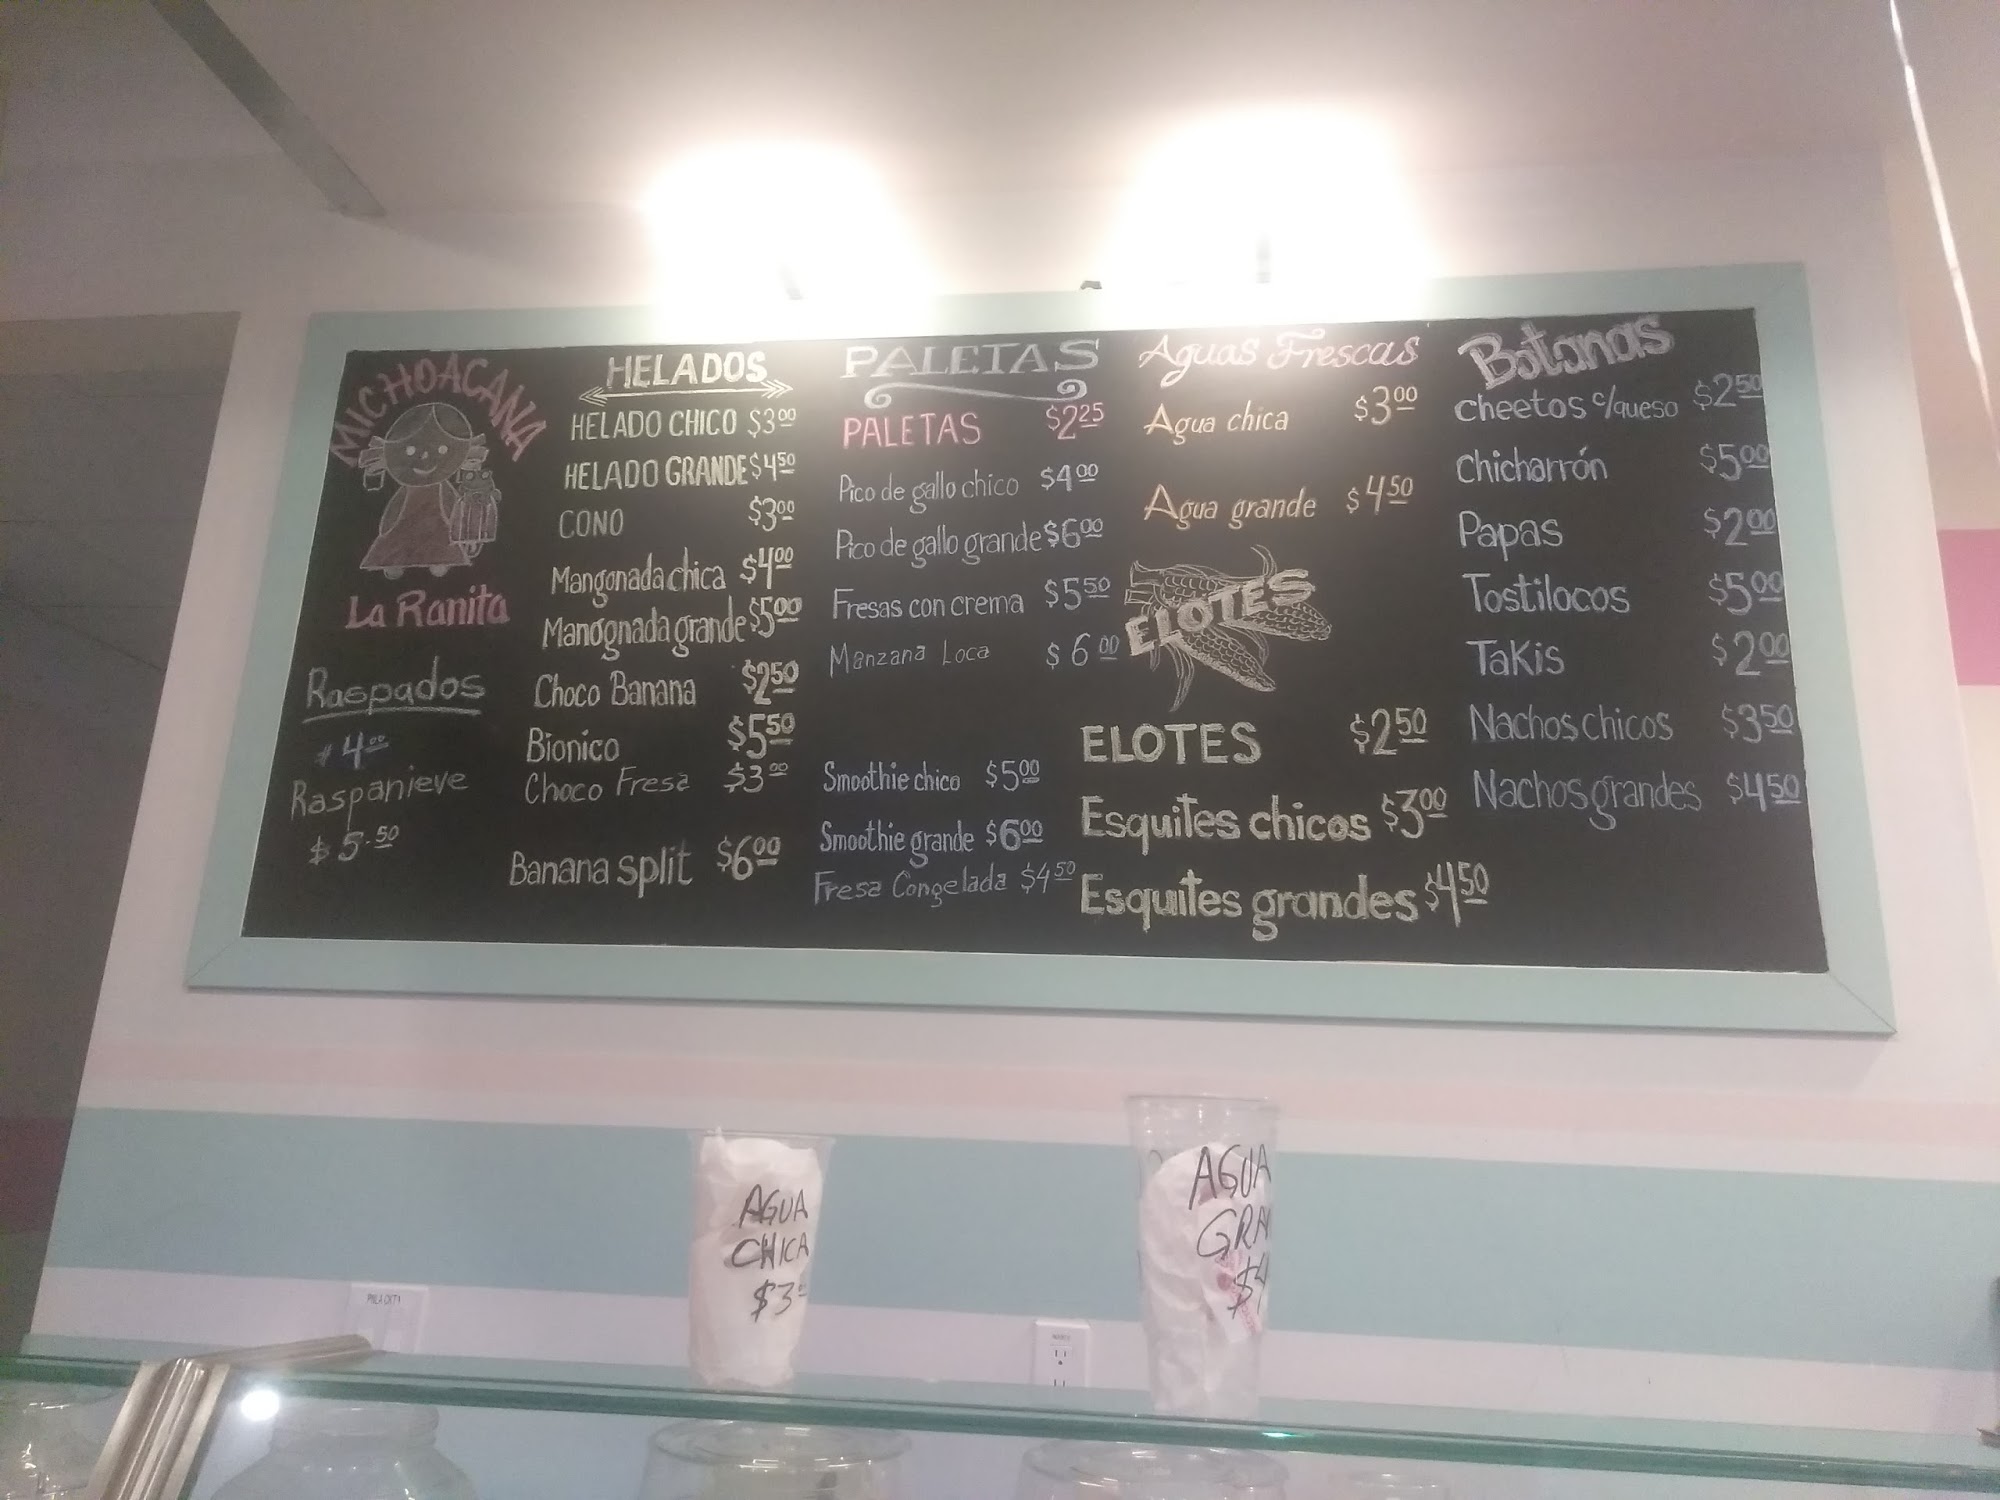 MICHOACANA
La Ranita
Raspados
$4.00
Raspanieve
$5.50
HELADOS
HELADO CHICO $3.00
HELADO GRANDE $4.50
CONO $3.00
Mangonada chica $4.00
Manognada grande $5.00
Choco Banana $2.50
Bionico $5.50
Choco Fresa $3.00
Banana split $6.00
PALETAS
PALETAS $2.25
Pico de gallo chico $4.00
Pico de gallo grande $6.00
Fresas con crema $5.50
Manzana Loca $6.00
Smoothie chico $5.00
Smoothie grande $6.00
Fresa Congelada $4.50
Aguas Frescas
Agua chica $3.00
Agua grande $4.50
ELOTES
ELOTES $2.50
Esquites chicos $3.00
Esquites grandes $4.50
Botanas
Cheetos c/queso $2.50
Chicharrón $5.00
Papas $2.00
Tostilocos $5.00
Takis $2.00
Nachos chicos $3.50
Nachos grandes $4.50
AGUA
CHICA
$3.00
AGUA
GRA
$4